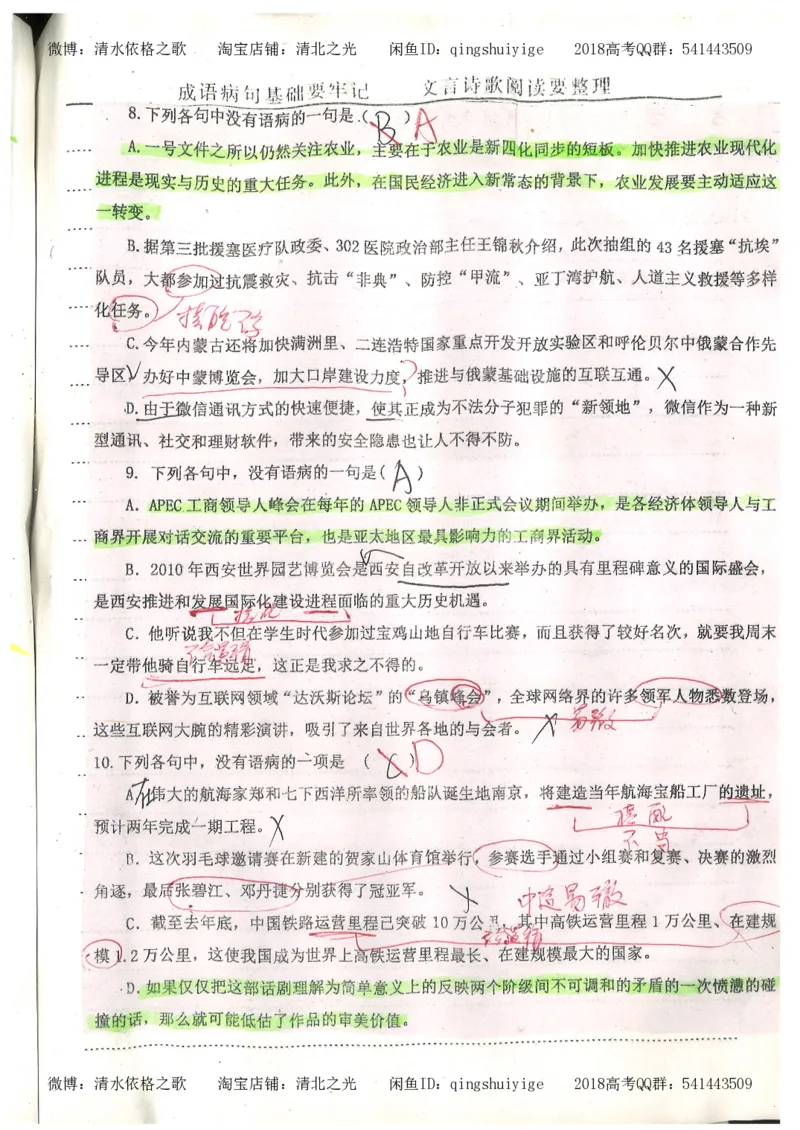 微博：清水依格之歌 淘宝店铺：清北之光 闲鱼ID：qingshuiyige 2018高考QQ群：541443509
成语病句基础要牢记 文言诗歌阅读要整理
8.下列各句中没有语病的一句是（B）A
A.一号文件之所以仍然关注农业，主要在于农业是新四化同步的短板。加快推进农业现代化
进程是现实与历史的重大任务。此外，在国民经济进入新常态的背景下，农业发展要主动适应这
一转变。
B.据第三批援塞医疗队政委、302医院政治部主任王锦秋介绍，此次抽组的43名援塞“抗埃”
队员，大都参加过抗震救灾、抗击“非典”、防控“甲流”、亚丁湾护航、人道主义救援等多样
化任务。
C.今年内蒙古还将加快满洲里、二连浩特国家重点开发开放实验区和呼伦贝尔中俄蒙合作先
导区，办好中蒙博览会，加大口岸建设力度，推进与俄蒙基础设施的互联互通。
D.由于微信通讯方式的快速便捷，使其正成为不法分子犯罪的“新领地”，微信作为一种新
型通讯、社交和理财软件，带来的安全隐患也让人不得不防。
9. 下列各句中，没有语病的一句是（A）
A. APEC工商领导人峰会在每年的APEC领导人非正式会议期间举办，是各经济体领导人与工
商界开展对话交流的重要平台，也是亚太地区最具影响力的工商界活动。
B. 2010年西安世界园艺博览会是西安自改革开放以来举办的具有里程碑意义的国际盛会，
是西安推进和发展国际化建设进程面临的重大历史机遇。
搭配
C. 他听说我不但在学生时代参加过宝鸡山地自行车比赛，而且获得了较好名次，就要我周末
一定带他骑自行车远足，这正是我求之不得的。
D. 被誉为互联网领域“达沃斯论坛”的“乌镇峰会”，全球网络界的许多领军人物悉数登场，
这些互联网大腕的精彩演讲，吸引了来自世界各地的与会者。
易辙
10.下列各句中，没有语病的一项是 （C）D
A.在伟大的航海家郑和七下西洋所率领的船队诞生地南京，将建造当年航海宝船工厂的遗址，
预计两年完成一期工程。
搭配
不当
B. 这次羽毛球邀请赛在新建的贺家山体育馆举行，参赛选手通过小组赛和复赛、决赛的激烈
角逐，最后张碧江、邓丹捷分别获得了冠亚军。
中途易辙
C. 截至去年底，中国铁路运营里程已突破10万公里，其中高铁运营里程1万公里、在建规
模1.2万公里，这使我国成为世界上高铁运营里程最长、在建规模最大的国家。
D.如果仅仅把这部话剧理解为简单意义上的反映两个阶级间不可调和的矛盾的一次愤懑的碰
撞的话，那么就可能低估了作品的审美价值。
微博：清水依格之歌 淘宝店铺：清北之光 闲鱼ID：qingshuiyige 2018高考QQ群：541443509